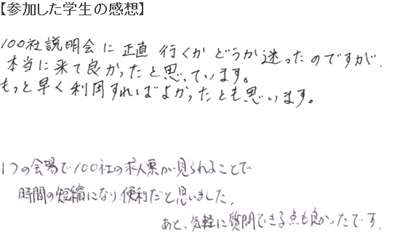 【参加した学生の感想】
100社説明会に正直行くかどうか迷ったのですが、
本当に来て良かったと思っています。
もっと早く利用すればよかったとも思います。
1つの会場で100社の求人票が見られることで
時間の短縮になり便利だと思いました。
あと、気軽に質問できる点も良かったです。